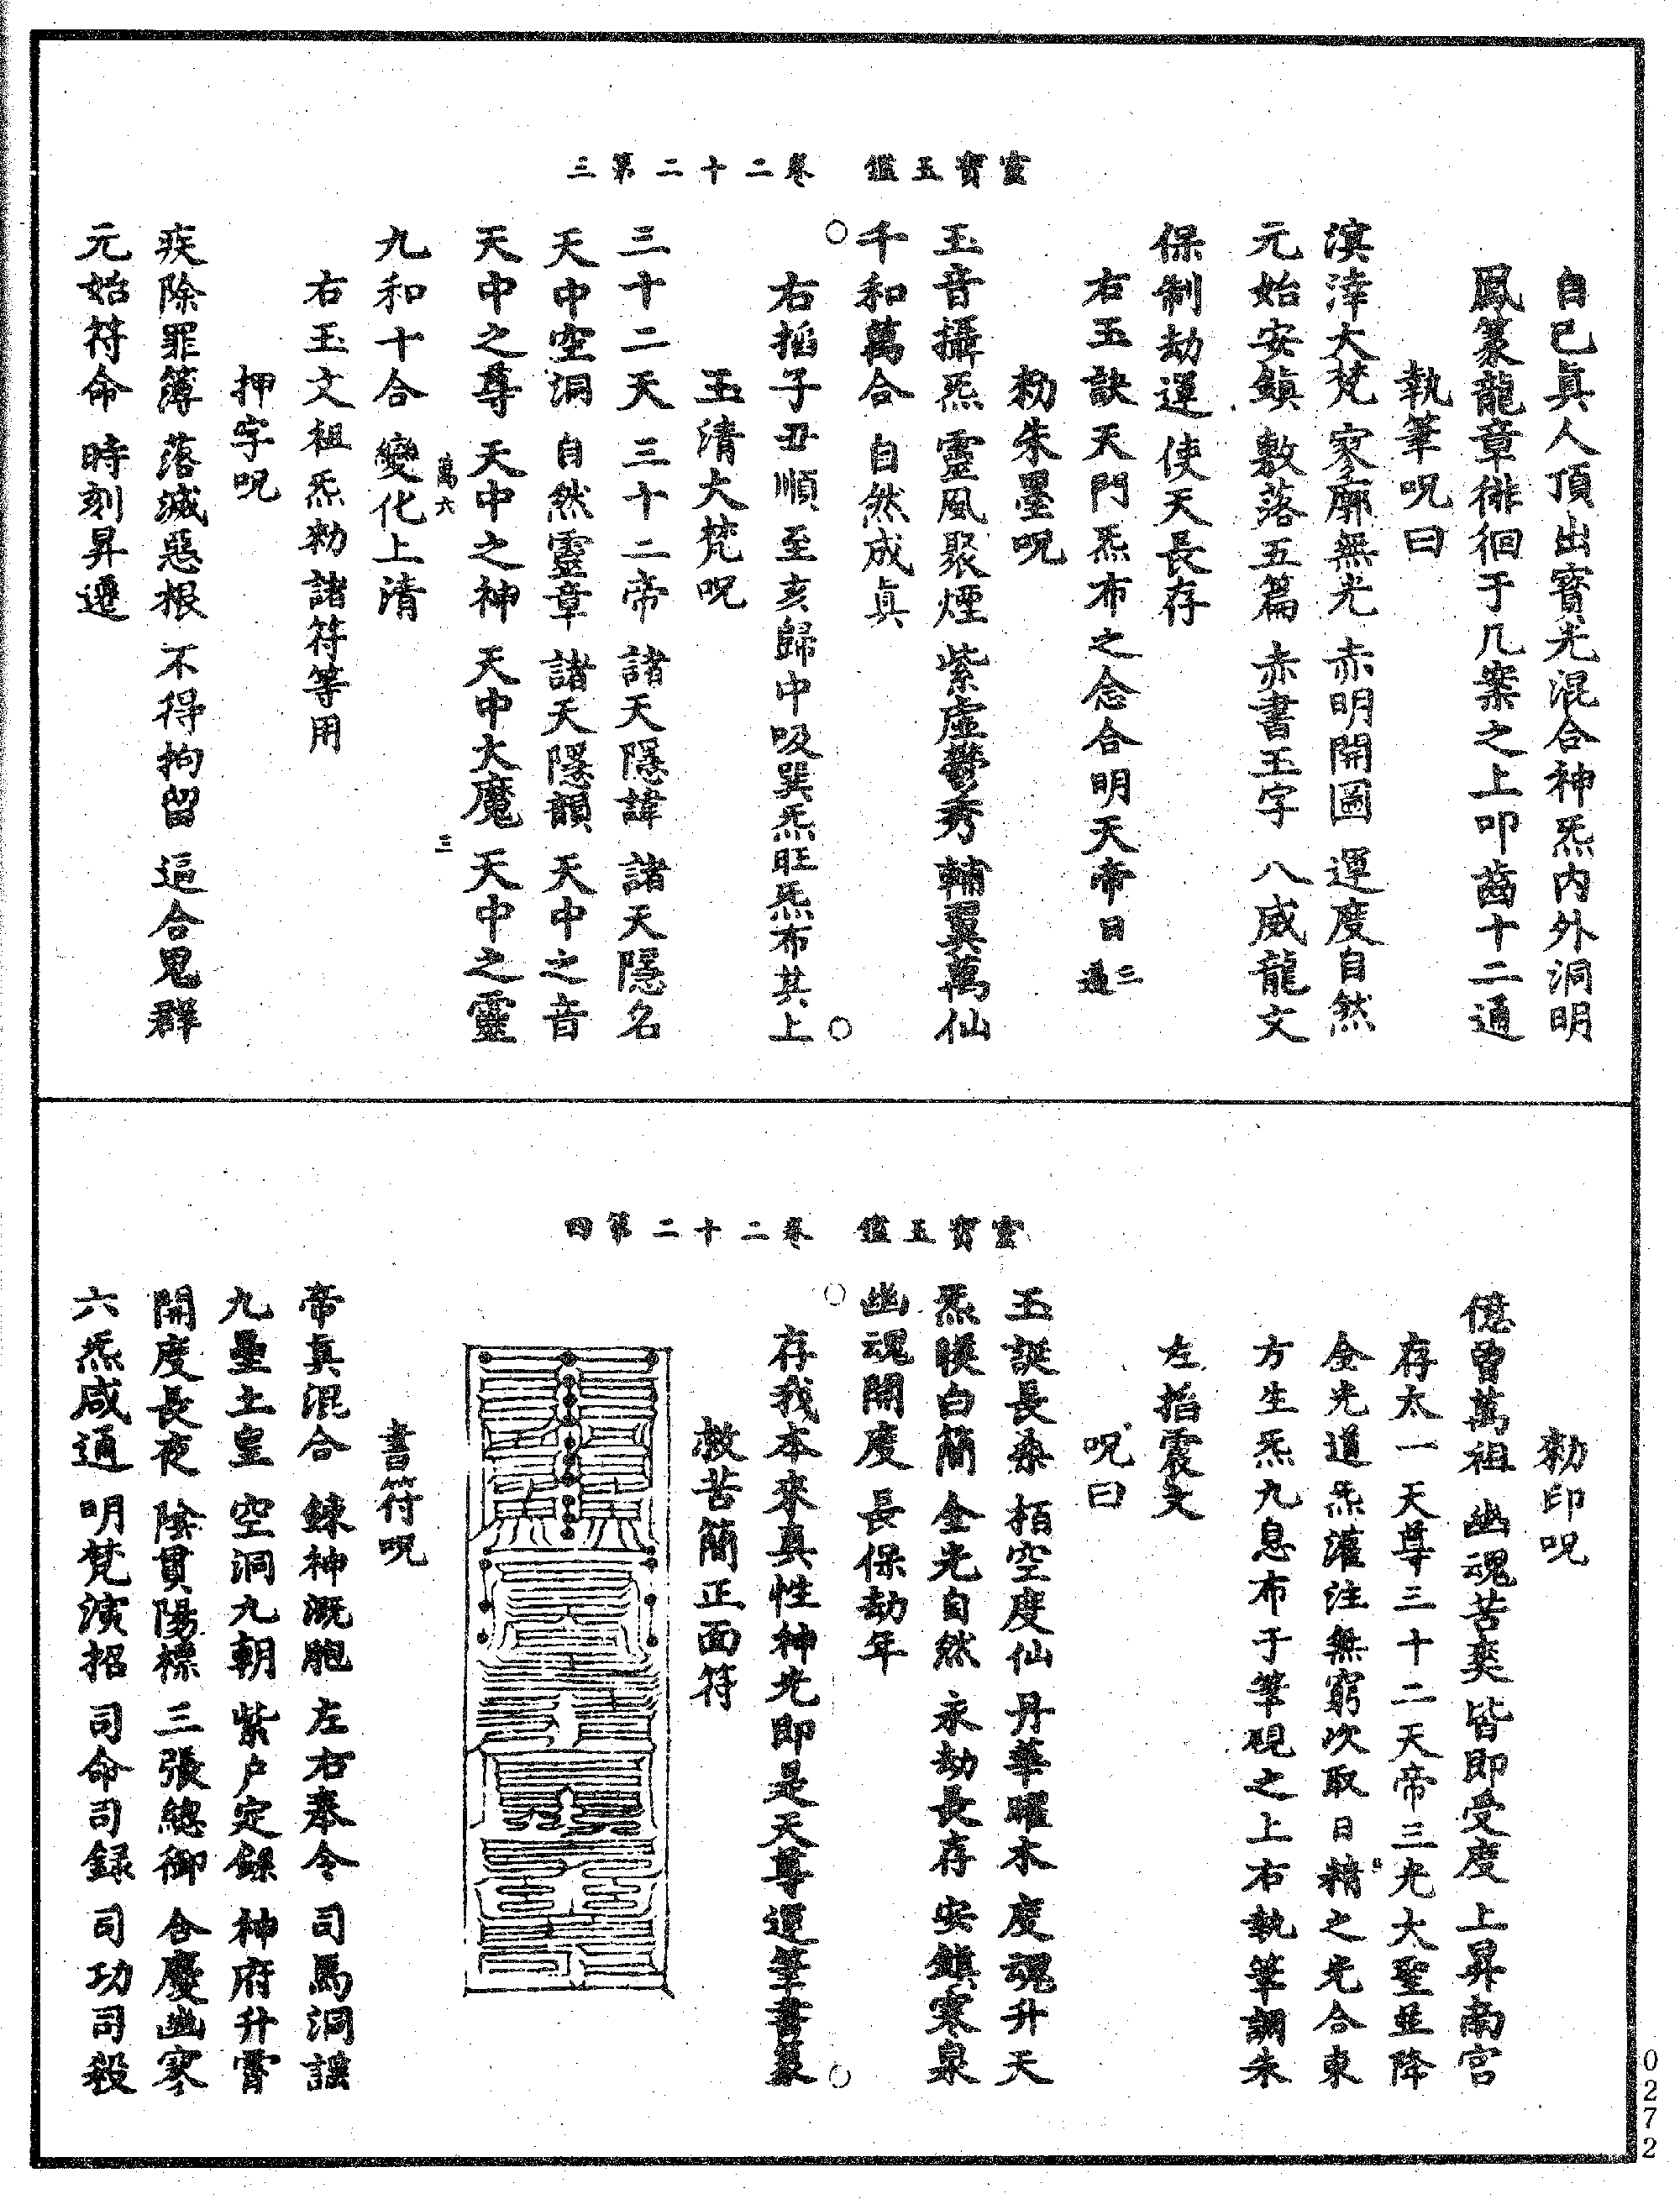 靈寶玉鑑　卷二十二第三
自己真人頂出寶光混合神炁内外洞明
鳳篆龍章徘徊于几案之上叩齒十二通
執筆呪曰
溟涬大梵　寥廓無光　赤明開圖　運度自然
元始安鎮　敷落五篇　赤書玉字　八威龍文
保制劫運　使天長存
右玉訣天門炁布之念合明天帝日三遍
勑朱墨呪
玉音攝炁　靈風聚煙　紫虛鬱秀　輔翼萬仙
千和萬合　自然成真
右掐子丑順至亥歸中吸巽炁旺炁布其上
玉清大梵呪
三十二天　三十二帝　諸天隱諱　諸天隱名
天中空洞　自然靈章　諸天隱韻　天中之音
天中之尊　天中之神　天中大魔　天中之靈
萬六　三
九和十合　變化上清
右玉文祖炁勑諸符等用
押字呪
疾除罪簿　落滅惡根　不得拘留　逼合鬼群
元始符命　時刻昇遷
靈寶玉鑑　卷二十二第四
勑印呪
億曾萬祖　幽魂苦爽　皆即受度　上昇南宮
存太一天尊三十二天帝三光大聖並降
金光道炁灌注無窮次取日精之光合東
方生炁九息布于筆硯之上右執筆調朱
左掐震文
呪曰
玉誕長桑　栢空度仙　丹華曜木　度魂升天
炁暎白簡　金光自然　永劫長存　安鎮寒泉
幽魂開度　長保劫年
存我本來真性神光即是天尊運筆書篆
救苦簡正面符
書符呪
帝真混合　鍊神溉胞　左右奉令　司馬洞謡
九壘土皇　空洞九朝　紫户定錄　神府升霄
開度長夜　陰貫陽標　三張總御　合慶幽寥
六炁咸通　明梵演招　司命司録　司功司殺
0272